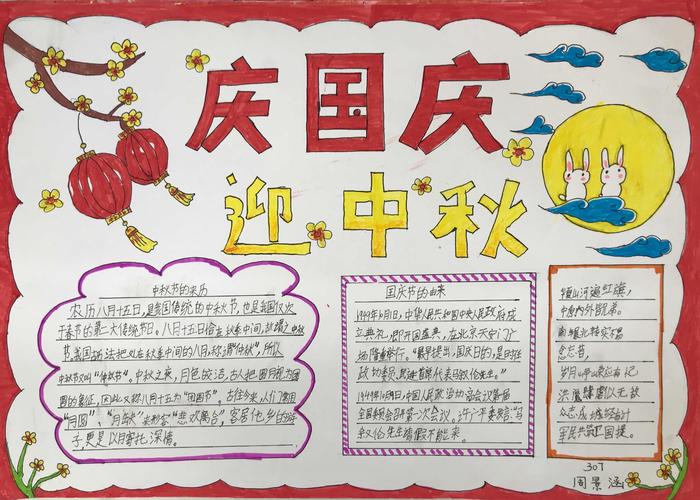 庆国庆
迎中秋
中秋节的来历
农历八月十五日,是我国传统的中秋节,也是我国仅次
于春节的第二大传统节日。八月十五日恰在秋季中间,故谓之中秋
节。我国历法把处在秋季中间的八月,称谓"仲秋",所以
中秋节又叫"仲秋节"。中秋之夜,月色皎洁,古人把圆月视为团
圆的象征,因此又称八月十五为"团圆节"。古往今来,人们常用
"月圆"、"月缺"来形容"悲欢离合",客居他乡的游
子,更是以月寄托深情。
国庆节的由来
1949年10月1日,中华人民共和国中央人民政府成
立典礼,即开国盛典,在北京天安门广
场隆重举行。"最早提出,国庆日的,是
政协委员,民进首席代表马叙伦先生。"
1949年10月9日,中国人民政治协商会议第一届
全国委员会召开第一次会议。许广平委员发言:"马
叙伦先生请假不能来。
山河遍红旗,
中
念
岁月
洪魔肆虐似无敌
众志成城
军民共筑
307
周景涵